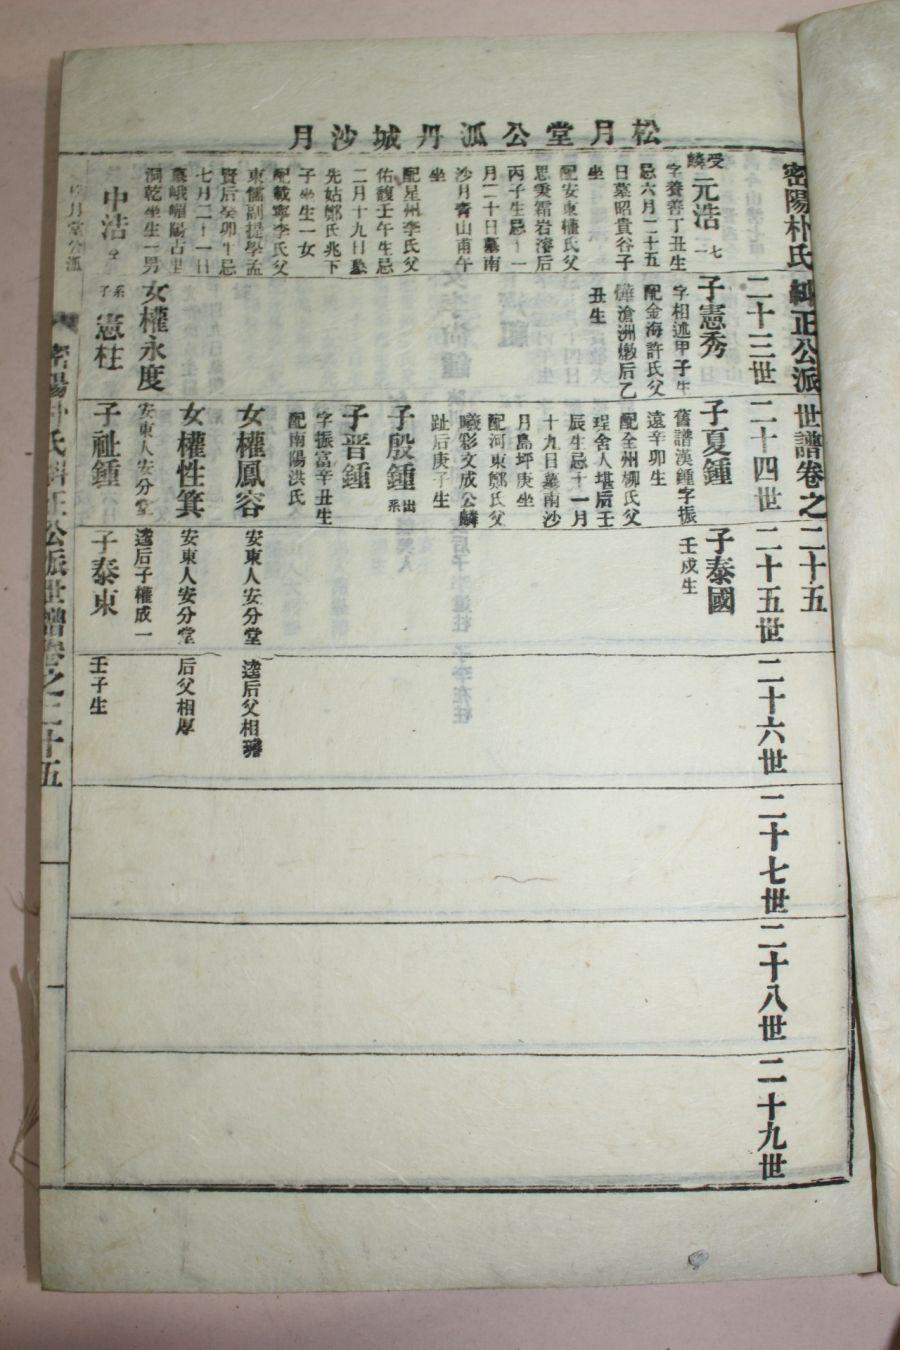 松月堂公派丹城沙月
密陽朴氏糾正公派世譜卷之二十五
二十三世
二十四世
二十五世
二十六世
二十七世
二十八世
二十九世
受麟
元浩
字養善丁丑生
忌六月二十五
日墓昭貴谷子
坐
配安東權氏父
思秉霜岩濬后
丙子生忌十一
月二十日墓南
沙月青山甫午
坐
配星州李氏父
佑馥壬午生忌
二月十九日墓
先姑鄭氏兆下
子坐生一女
配載寧李氏父
東儒副提學孟
賢后癸卯生忌
七月二十一日
墓峨嵋陽占里
洞乾坐生一男
中浩
子憲秀
字相述甲子生
配金海許氏父
燁滄洲燉后乙
丑生
女權永度
系子
憲柱
子夏鍾
舊譜漢鍾字振
遠辛卯生
配全州柳氏父
珵舍人堪后壬
辰生忌十一月
十九日墓南沙
月島坪庚坐
配河東鄭氏父
曦彩文成公麟
趾后庚子生
子殷鍾
出系
子晋鍾
字振富辛丑生
配南陽洪氏
女權鳳容
女權性箕
安東人安分堂
子祉鍾
子泰國
壬戌生
安東人安分堂
安東人安分堂
逵后子權成一
子泰東
逵后父相
后父相厚
壬子生
月堂公派
密陽朴氏糾正公派世譜卷之二十五